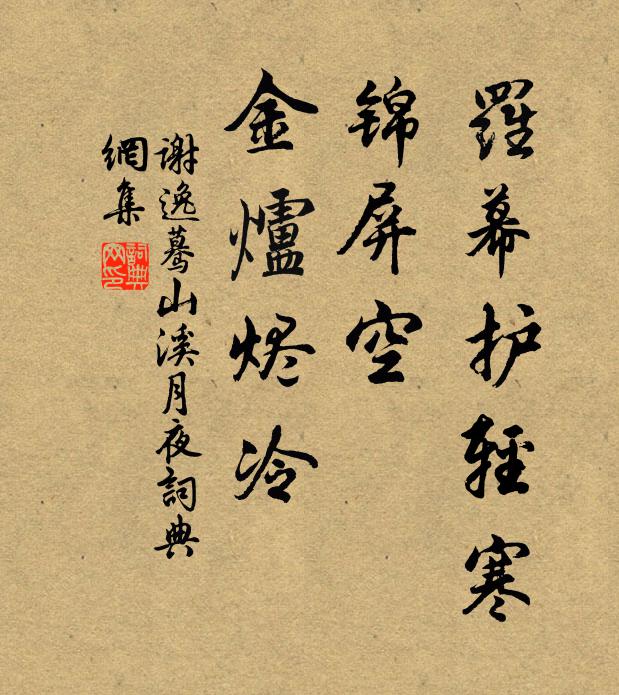 羅幕护輕寒
锦屏空
金爐烬冷
谢逸驀山溪月夜詞典
網集
詞典
网印